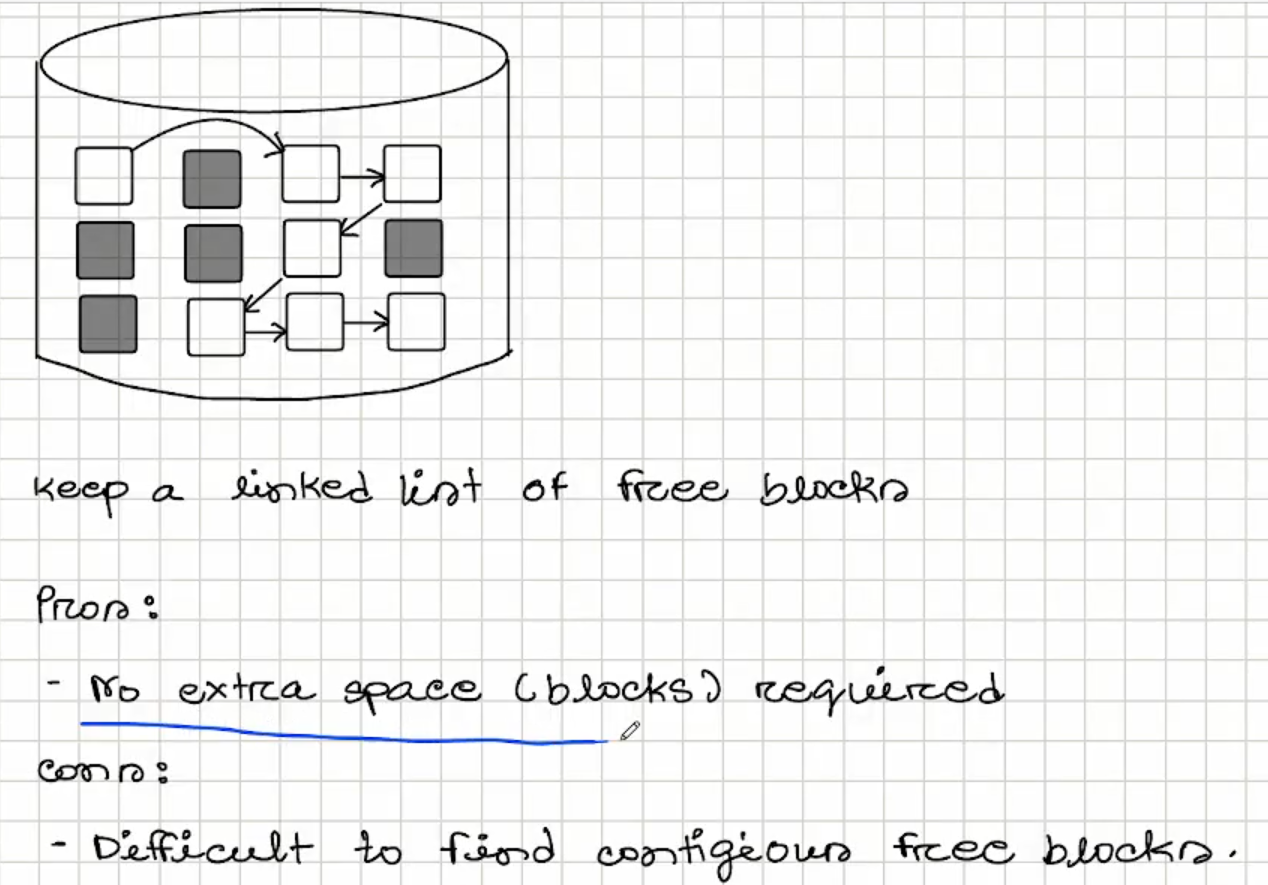 Keep a linked list of free blocks
Pros:
- No extra space (blocks) required
cons:
- Difficult to find contigious free blocks.